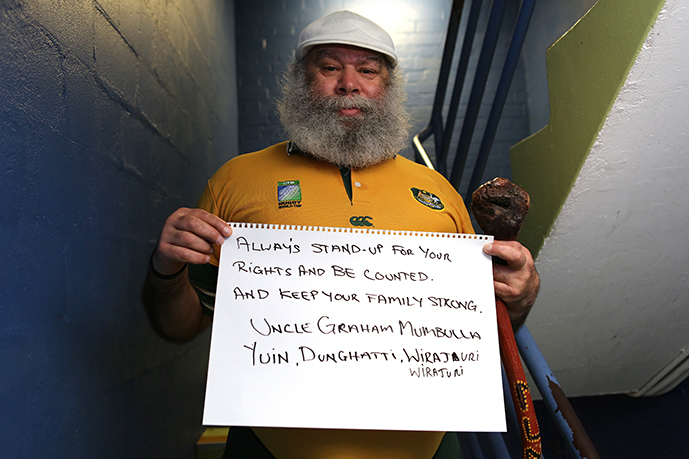 ALWAY'S STAND-UP FOR YOUR
RIGHTS AND BE COUNTED.
AND KEEP YOUR FAMILY STRONG.
UNCLE GRAHAM MUMBULLA
YUIN, DUNGHATTI, WIRAJAURI
WIRAJURI
RUGBY
WORLD CUP
CCC